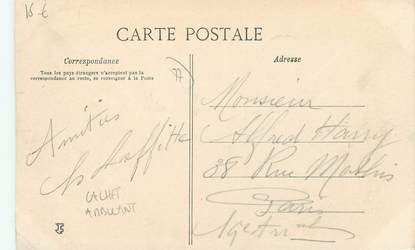 15 €
CARTE POSTALE
Correspondance
Tous les pays étrangers n'acceptent pas la
correspondance au recto, se renseigner à la Poste
Adresse
77
Amitiés
Laffitte
CACHET
AMBULANT
Monsieur
Alfred Harry
38 Rue
Paris